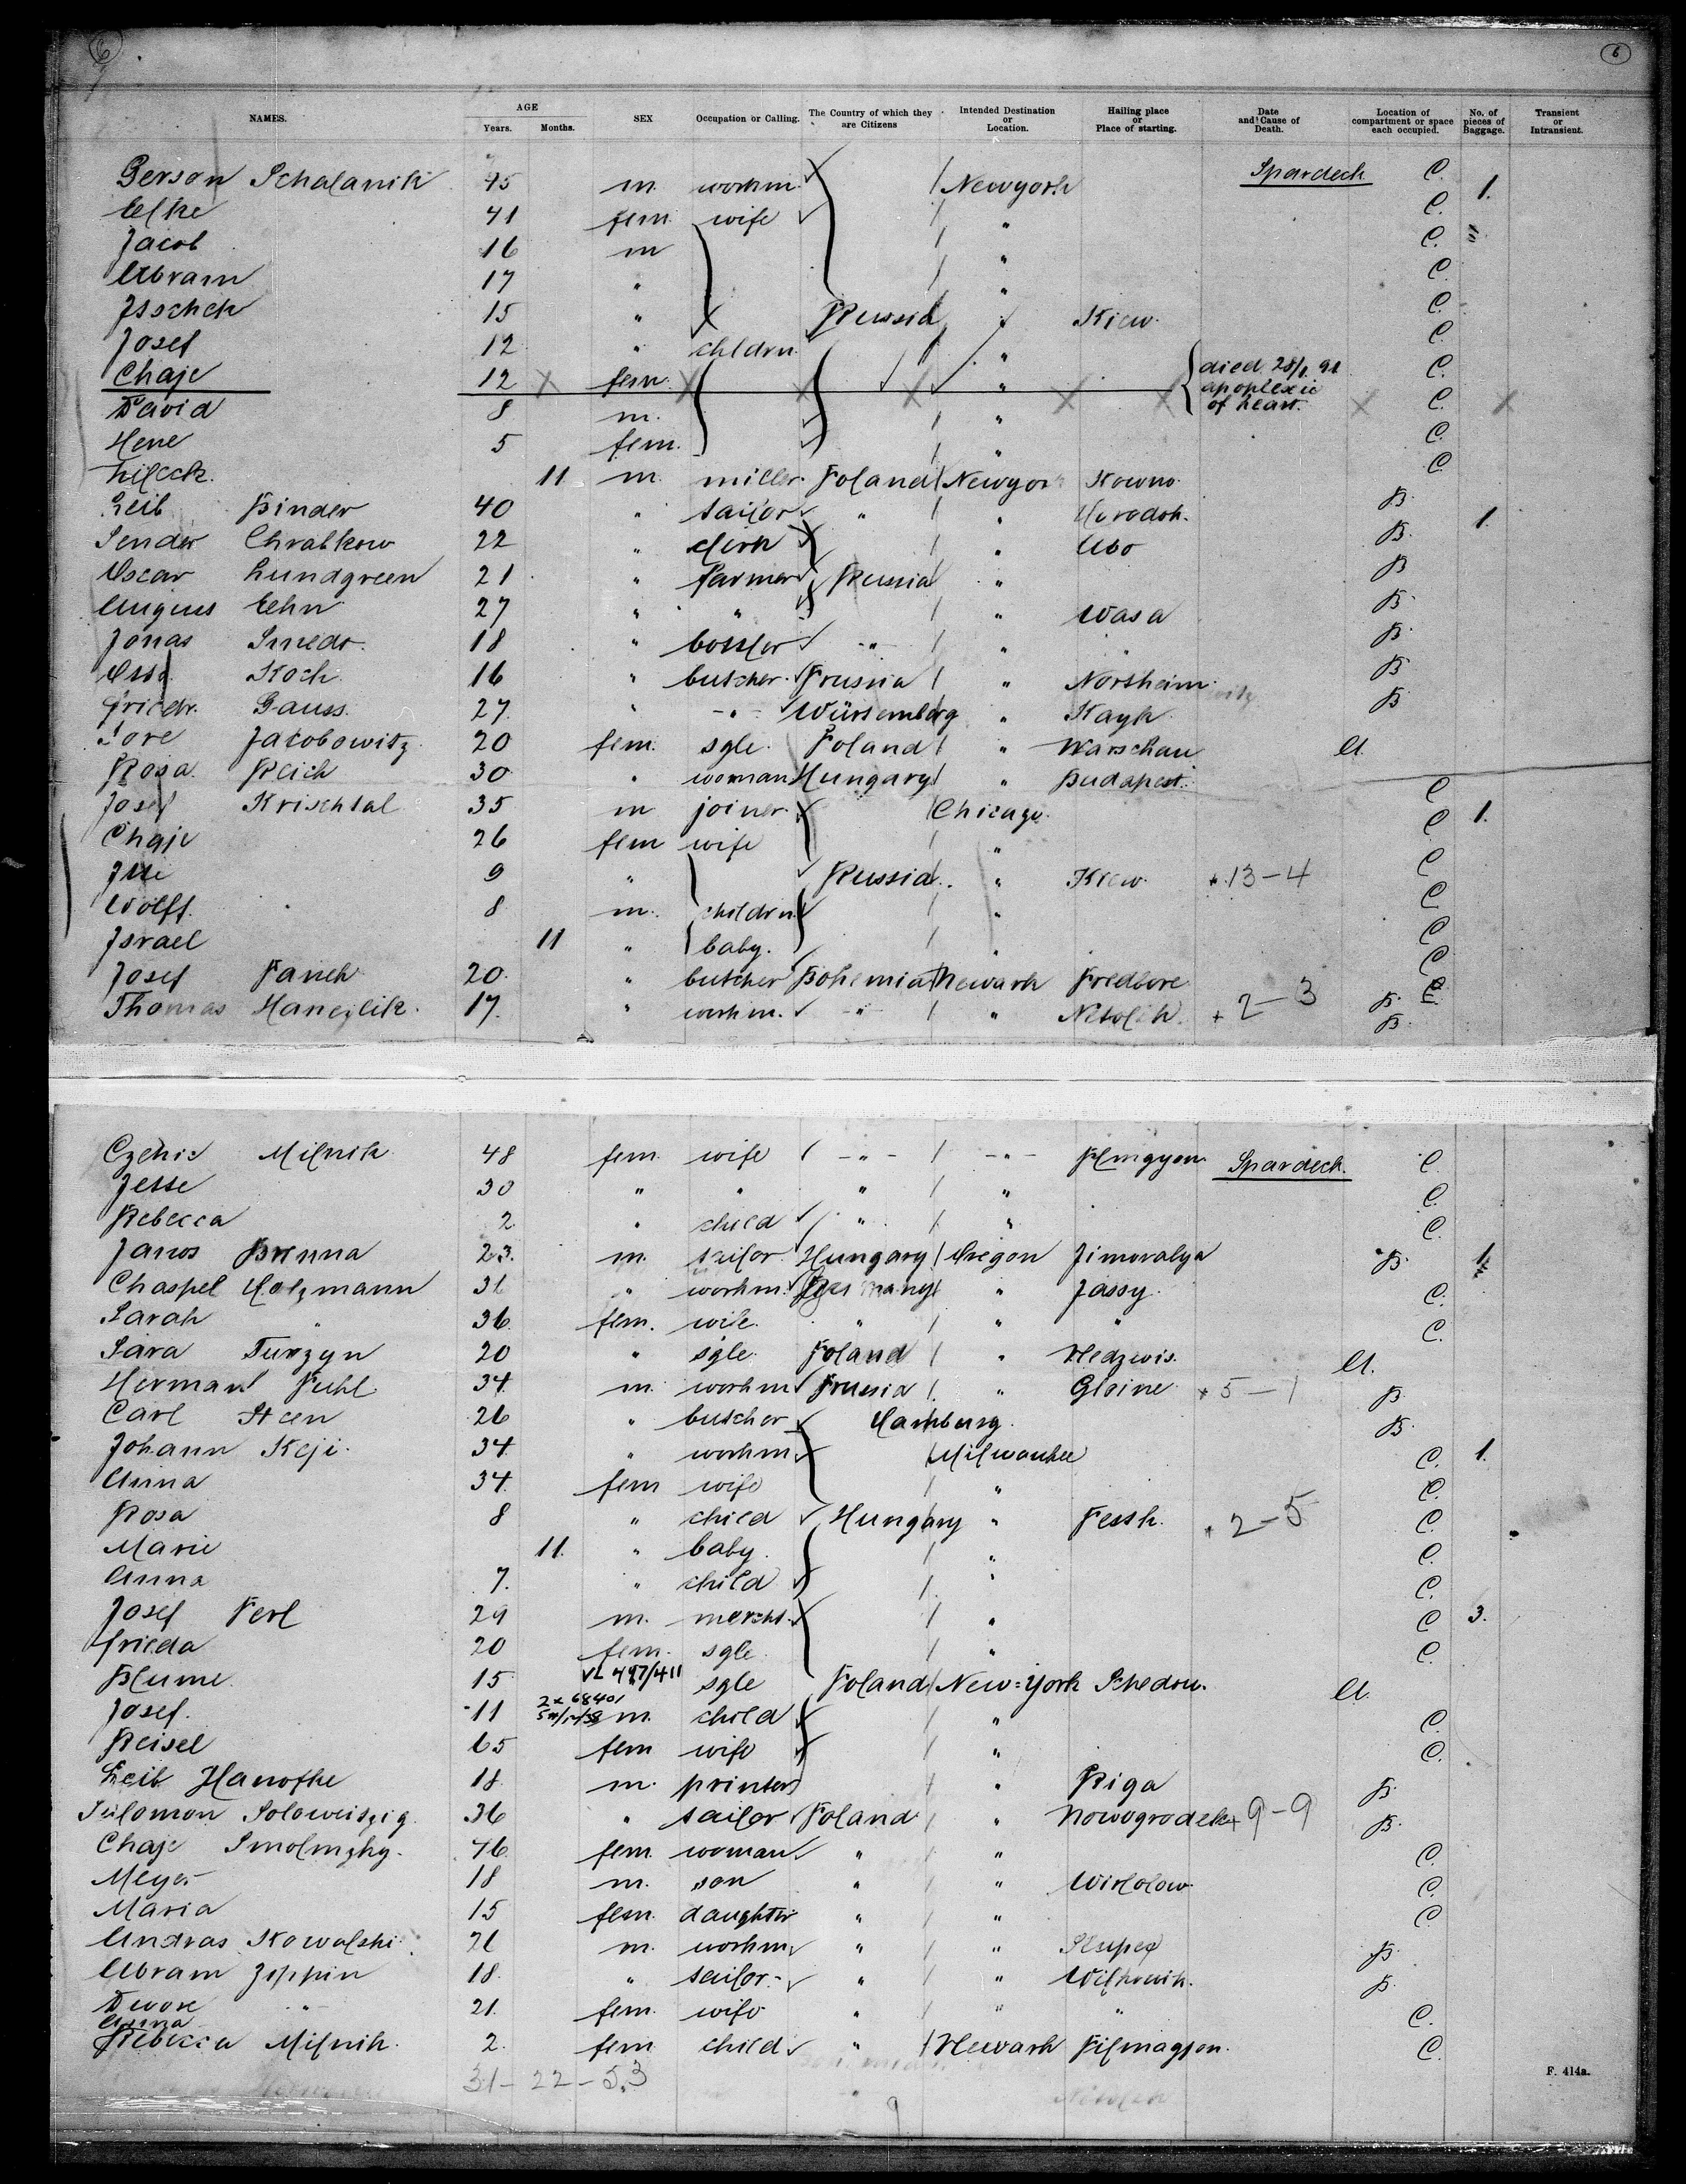 6 6
NAMES. AGE Years. Months. SEX Occupation or Calling. The Country of which they are Citizens Intended Destination or Location. Hailing place or Place of starting. Date and Cause of Death. Location of compartment or space each occupied. No. of pieces of Baggage. Transient or Intransient.
Gerson Schalanik 45 m workm. Newyork Spardeck C. 1.
Elke 41 fem wife " C.
Jacob 16 m " C.
Abram 17 " " C.
15 " Russia " Kiew. C.
Josef 12 " chldrn. " C.
Chaje 12 fem. " died 28/1. 91 apoplexie of heart. C.
David 8 m. " C.
Hene 5 fem. " C.
11 m. miller. Poland Newyork Kowno. C.
Leib Binder 40 " tailor " " Horodok. B. 1.
Sender Chrabkow 22 " clerk " Abo B.
Oscar Lundgreen 21 " farmer Russia " B
Augus 27 " " Wasa B.
Jonas Smedr. 18 " -"- " B.
Koch 16 " butcher. Prussia " Northeim. B
Friedr. Gauss. 27. " -"- Würtemberg " Kayh B.
Dore Jacobowitz 20 fem. sgle. Poland " Warschau A.
Rosa Reich 30 " woman Hungary " Budapest.
Josef Krischtal 35 m joiner. Chicago. C
Chaje 26 fem wife " C 1.
9 " Russia " Kiew. 13-4 C
Wolff. 8 m. childrn. " C
Israel 11 " baby. " C
Josef Panek 20. " butcher Bohemia Newark C
Thomas 17. " workm. -"- " Netolik. + 2-3 B. C.
B.
Milnik 48 fem. wife -"- -"- Spardeck. C.
Jesse 30 " " " " C.
Rebecca 2 " child " " C.
Janos 23. m. tailor Hungary Oregon Jimoralya B. 1.
Chaspel Holzmann 36 " workm. Germany " Jassy. C.
Sarah " 36. fem. wife. " " " C.
Sara Turzyn 20 " sgle. Poland " A.
Herman Puhl. 34. m. workm Prussia " Gloine + 5-1 B
Carl Steen 26 " butcher Hamburg. B.
Johann Keji. 34. " workm. Milwaukee C. 1.
Anna 34. fem wife " C.
Rosa 8 " child Hungary " Pessth. 2-5 C.
Marie 11. " baby. " C.
Anna 7. " child " C.
Josef Perl 29 m. mercht. " C 3.
Frieda 20 fem. sgle. " C.
Blume. 15 VL 497/411 sgle Poland New=York A.
Josef. 11 2x 68401 m. child " C.
Reisel 65 fem wife " C.
Leib Hanofke 18. m. printer " Riga B.
Solomon Soloweitzig 36 " tailor Poland " Nowogrodek + 9-9 B.
Chaje 46. fem. woman " " C.
Meyer 18 m. son " " C.
Maria 15 fem. daughter " " C
Andras Kowalski 26 m. workm. " " B.
Abram Zippin 18. " tailor- " " B.
Dwore -"- 21. fem. wife. " " " C.
Anna
Rebecca Milnik. 2. fem child " Newark C.
31-22-53
9
F. 414a.